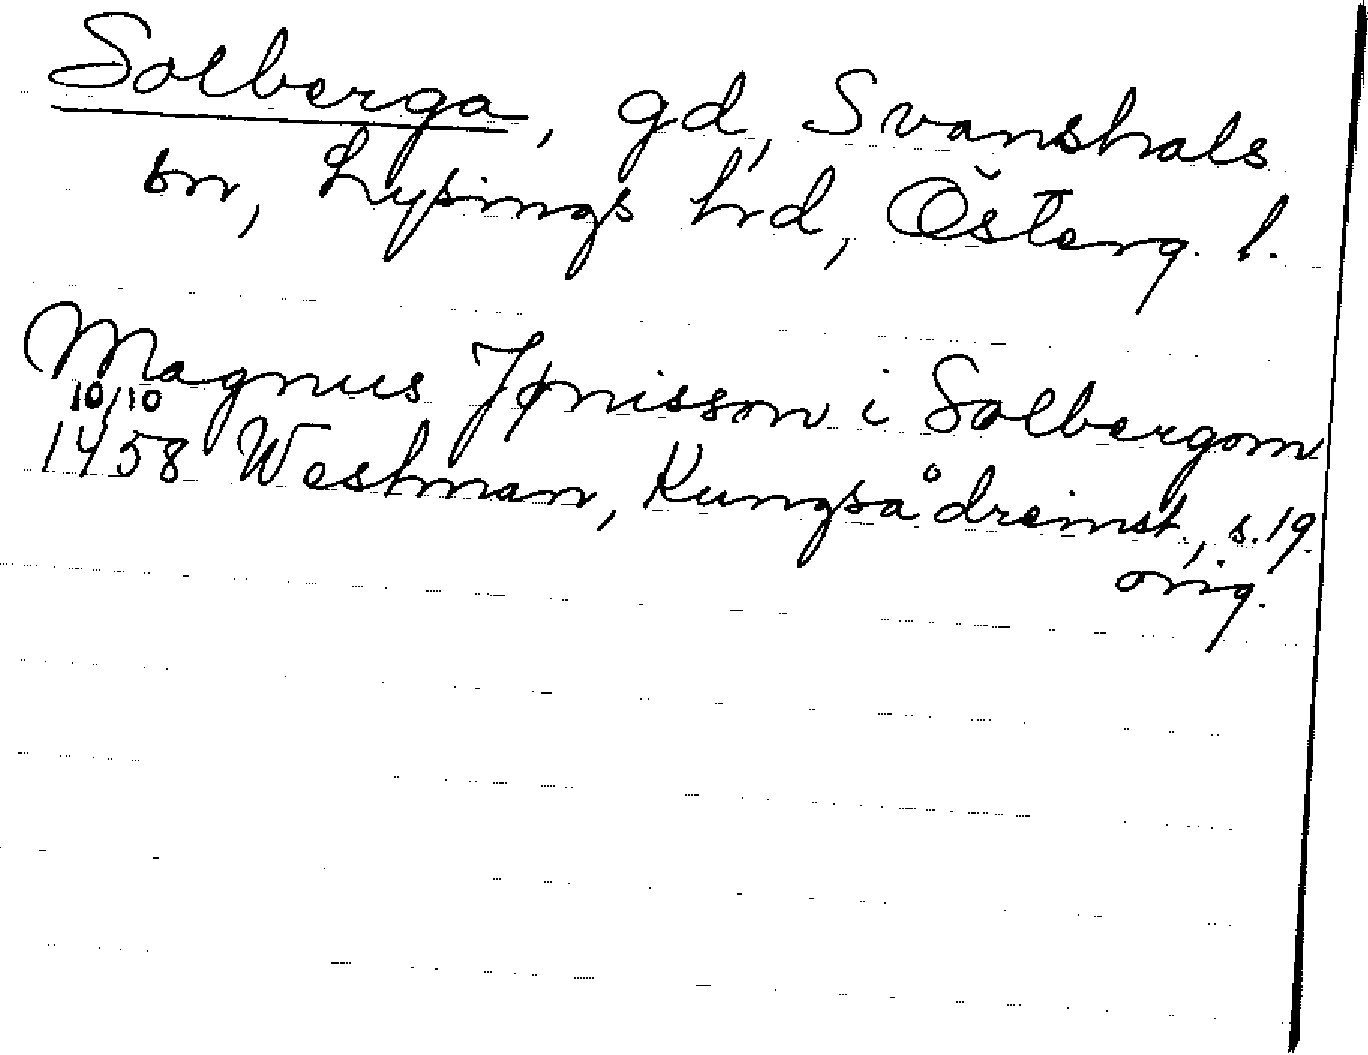 Solberga, gd, Svanshals
sn, Lysings hrd, Österg. l.
Magnus Jønisson i Solbergom
10/10
1458 Westman, Kungsådreinst., s. 19.
orig.